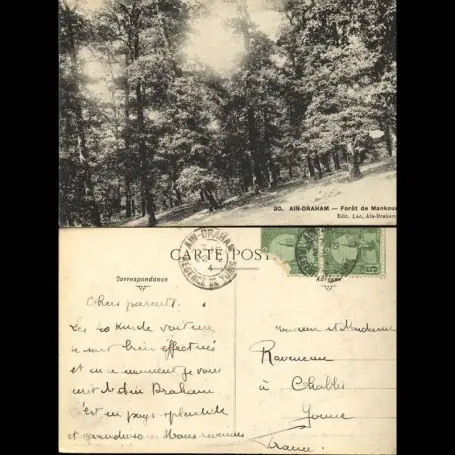 30. AIN-DRAHAM — Forêt de Mankoura
Edit. Luc, Aïn-Draham
CARTE POST
Correspondance
Adresse
AIN-DRAHAM
REGENCE DE TUNIS
5
Chers parents.
Les 60 kil de voiture
se sont bien effectués
et en ce moment je vous
écrit Aïn Draham
C'est un pays splendide
et grandiose Nous revenons
Monsieur et Madame
Raveneau
à Chablis
Yonne
France